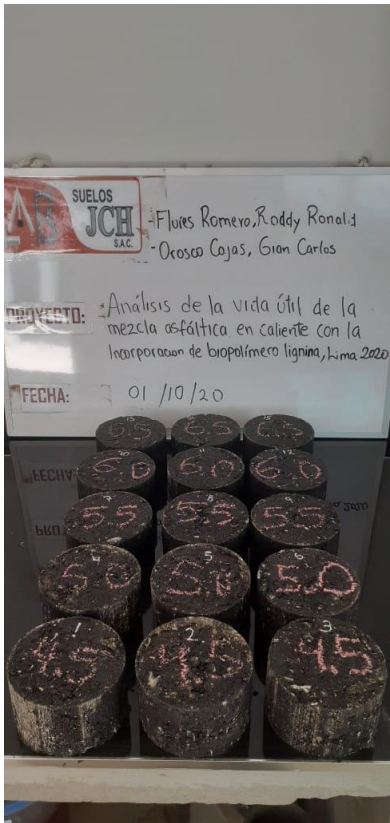 SUELOS
JCH
S.A.C.
- Flores Romero, Roddy Ronald
- Orosco Cajas, Gian Carlos
PROYECTO:
Análisis de la vida útil de la
mezcla asfáltica en caliente con la
Incorporacion de biopolímero lignina, Lima 2020
FECHA: 01 /10/20
6.5
6.0 6.0 6.0
5.5 5.5 5.5
5.0 5.0
1 2 3
4.5 4.5 4.5